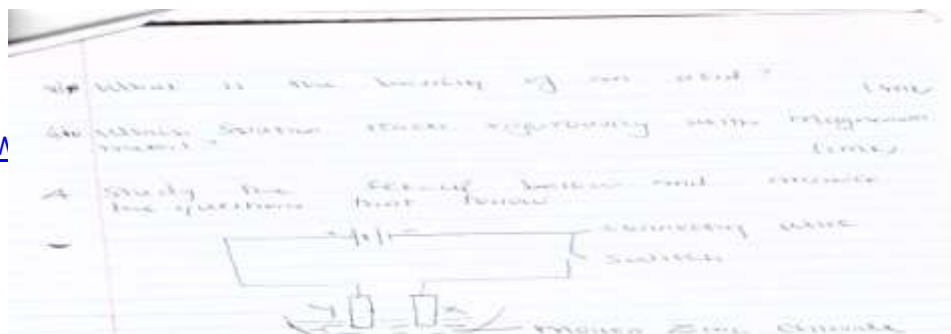 What is the basicity of an acid?
1 mk
Which solution reacts vigorously with magnesium
1 mk
Study the set-up below and answer
the questions that follow
Connecting wire
Switch
Y
Molten Zinc Chloride